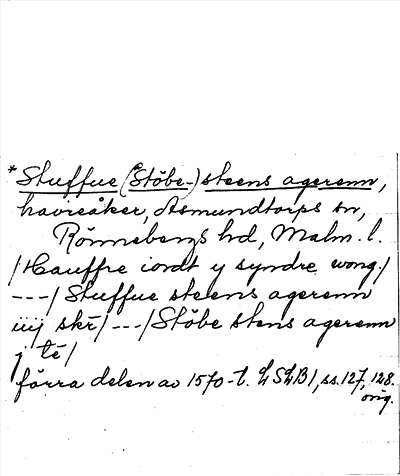 *Stuffue (Støbe-) steens agerenn,
havreåker, Asmundtorps sn,
Rönnebergs hd, Malm. l.
/Hauffre iordt y syndre wong./
---/Stuffue steens agerenn
iiij skr̄/---/Støbe stens agerenn
j tē/
förra delen av 1570-t. LSLB1, ss. 127, 128.
orig.